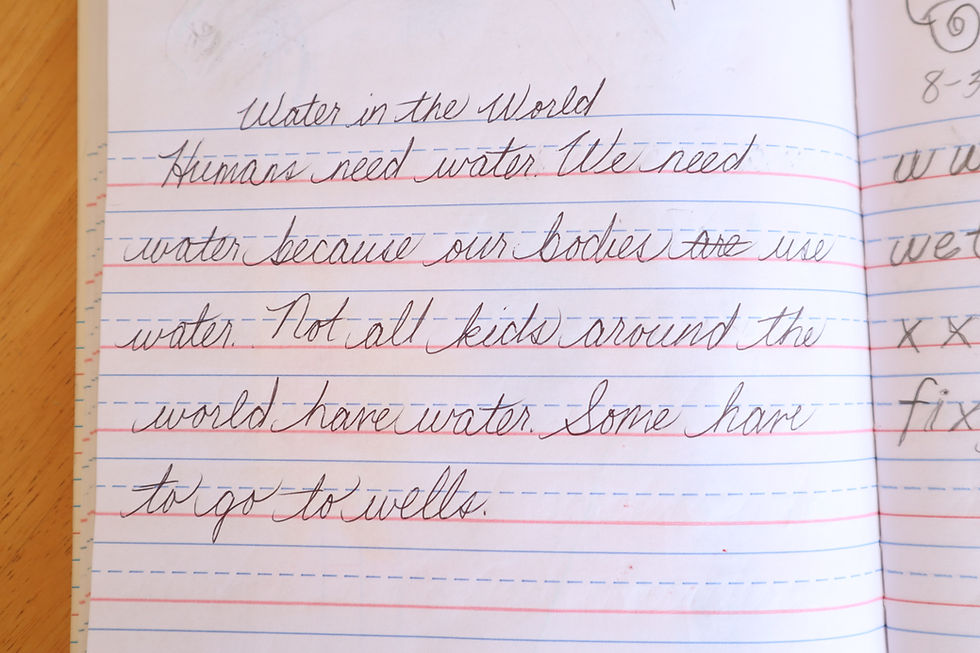 Water in the World
Humans need water. We need
water because our bodies ~~are~~ use
water. Not all kids around the
world have water. Some have
to go to wells.
8-3
w w
wet
x x
fix